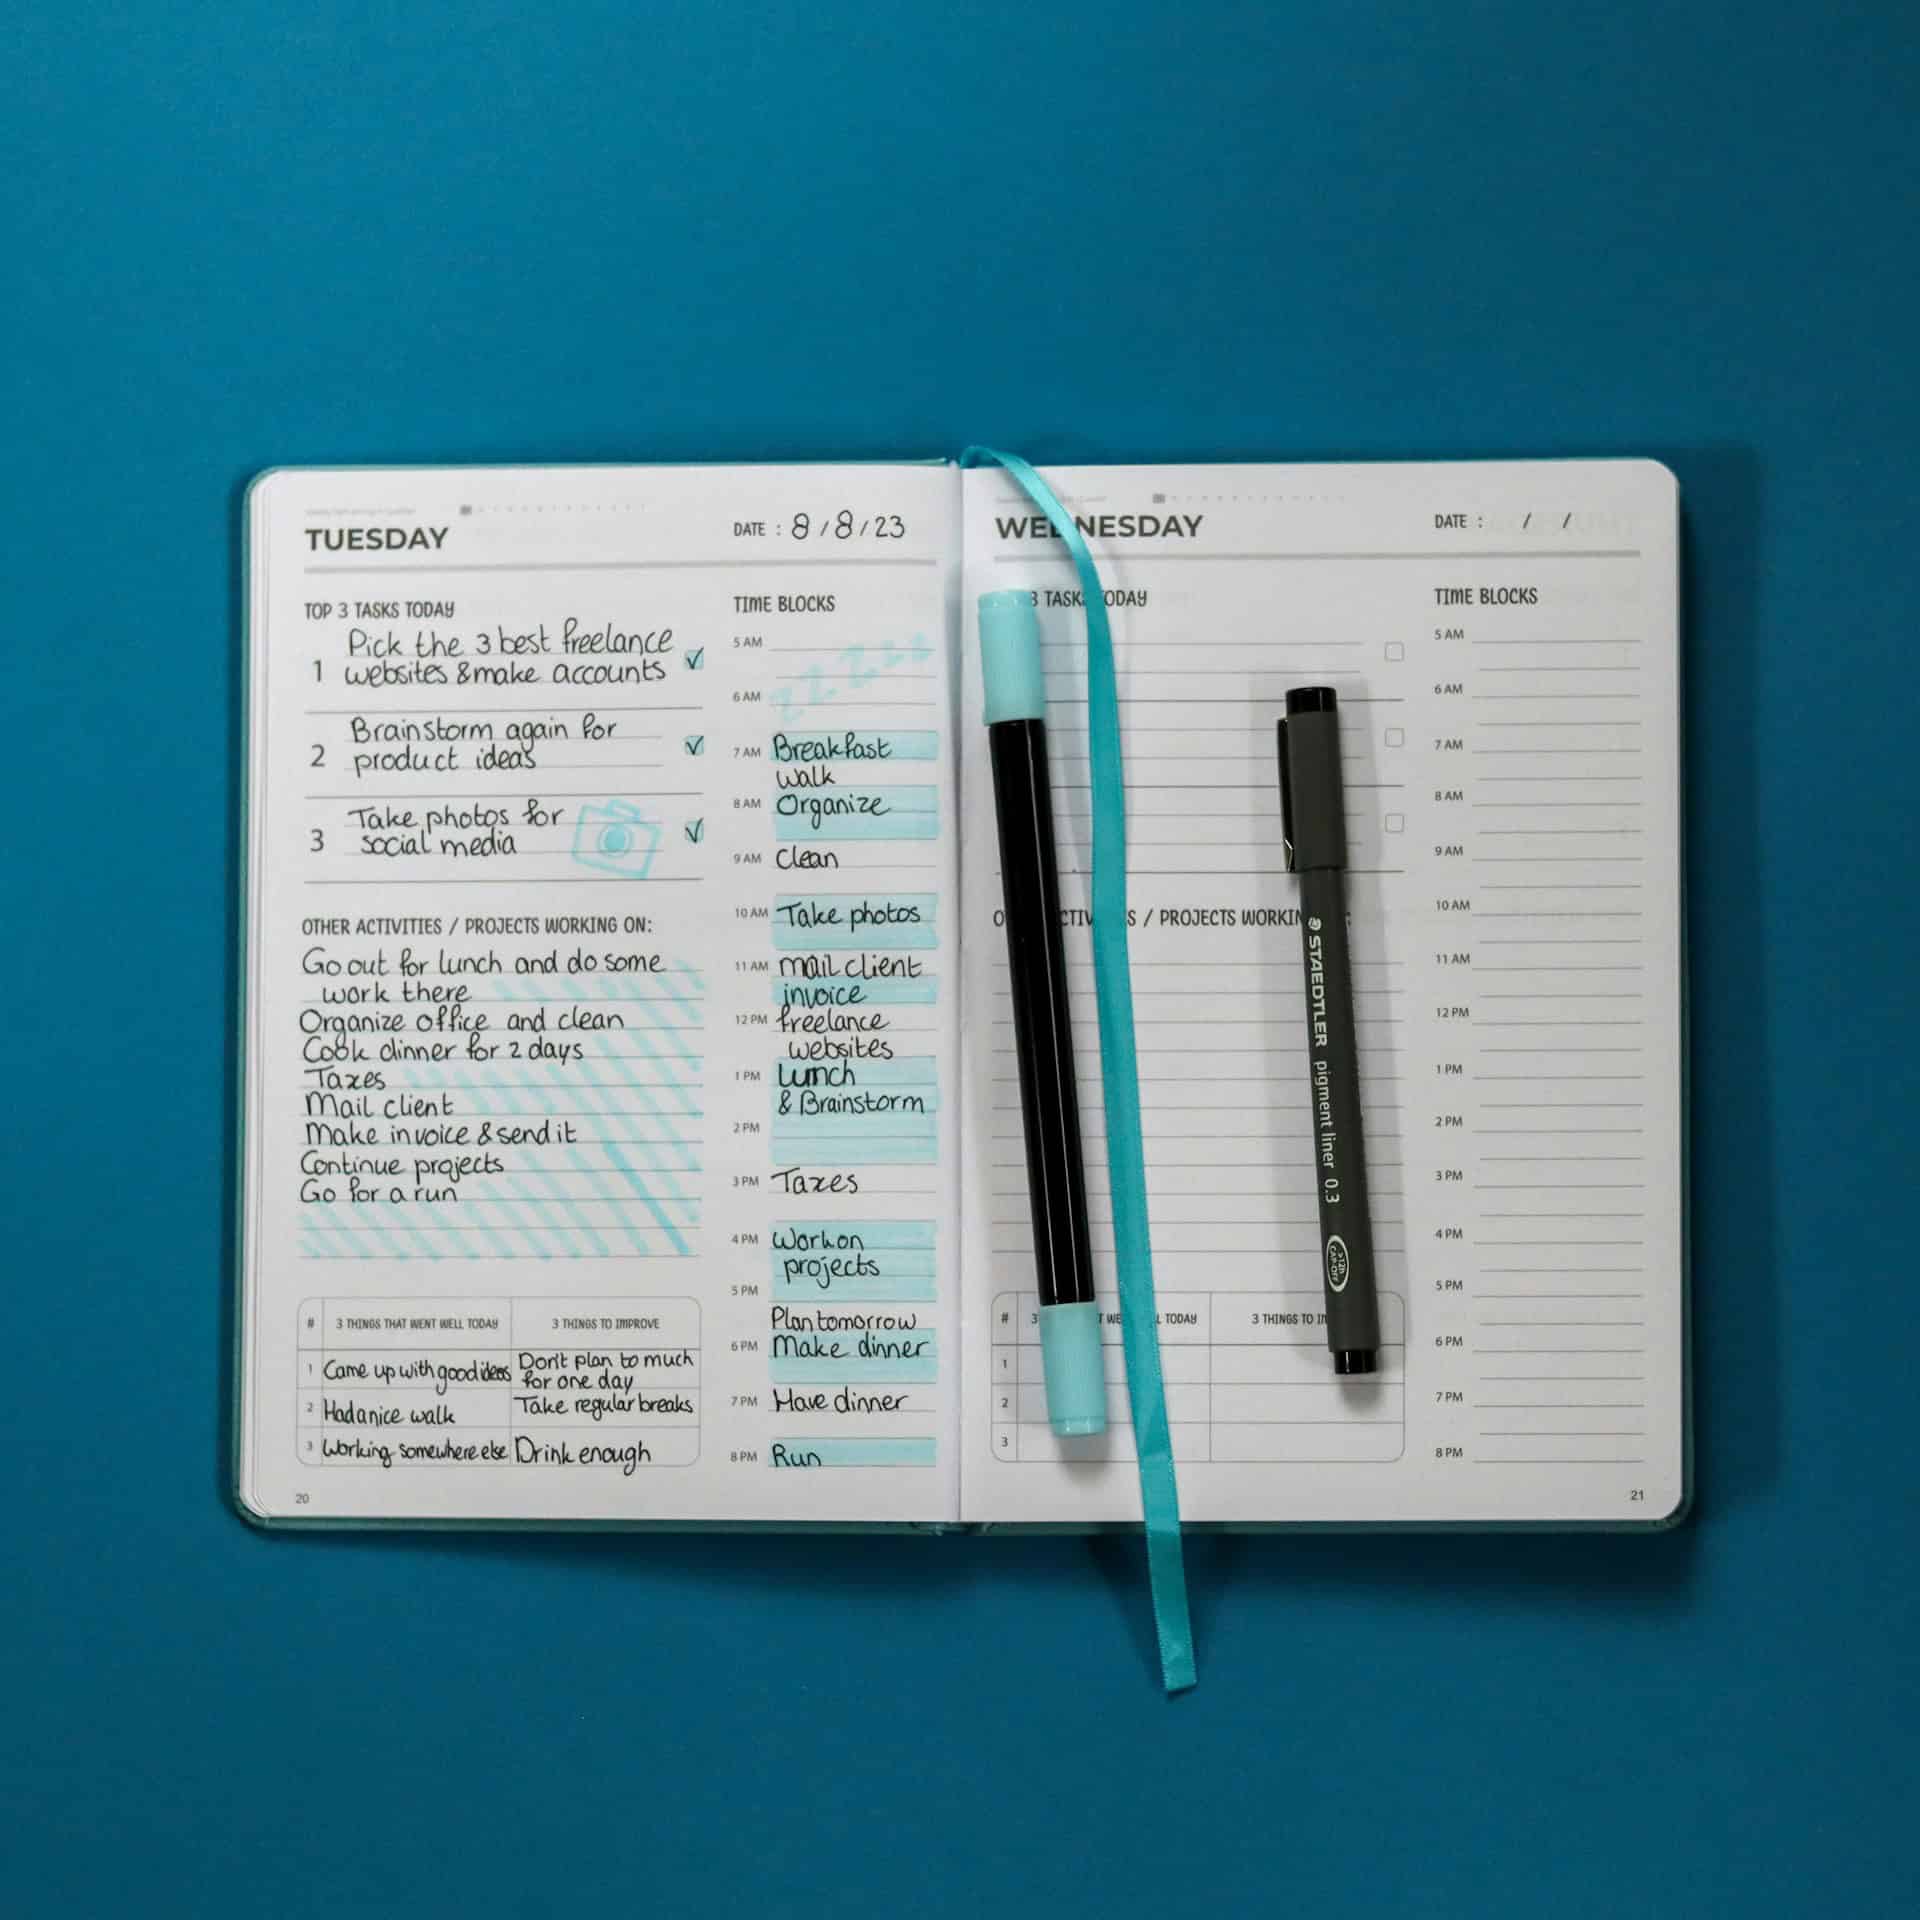 TUESDAY
DATE : 8/8/23
TOP 3 TASKS TODAY
1 Pick the 3 best freelance
websites & make accounts
2 Brainstorm again for
product ideas
3 Take photos for
social media
OTHER ACTIVITIES / PROJECTS WORKING ON:
Go out for lunch and do some
work there
Organize office and clean
Cook dinner for 2 days
Taxes
Mail client
Make invoice & send it
Continue projects
Go for a run
# 3 THINGS THAT WENT WELL TODAY 3 THINGS TO IMPROVE
1 Came up with good ideas Don't plan to much
for one day
2 Had a nice walk Take regular breaks
3 Working somewhere else Drink enough
20
TIME BLOCKS
5 AM
zzzzzz
6 AM
7 AM Breakfast
walk
8 AM Organize
9 AM Clean
10 AM Take photos
11 AM mail client
invoice
12 PM freelance
websites
1 PM Lunch
& Brainstorm
2 PM
3 PM Taxes
4 PM Work on
projects
5 PM
Plan tomorrow
6 PM Make dinner
7 PM Have dinner
8 PM Run
WEDNESDAY
DATE : / /
3 TASKS TODAY
/ PROJECTS WORKIN
# 3 WE L TODAY 3 THINGS TO I
1
2
3
TIME BLOCKS
5 AM
6 AM
7 AM
8 AM
9 AM
10 AM
11 AM
12 PM
1 PM
2 PM
3 PM
4 PM
5 PM
6 PM
7 PM
8 PM
21
STAEDTLER pigment liner 0.3
>12h
CAP-OFF